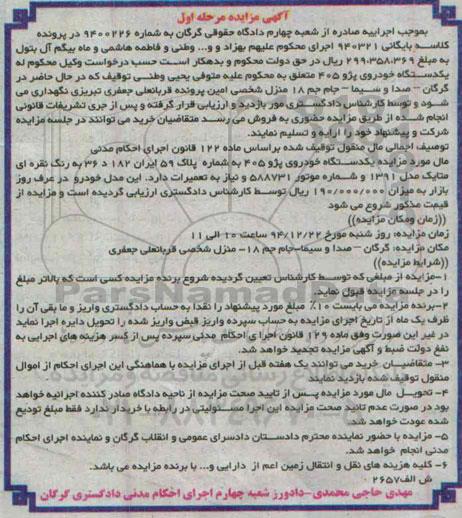 آگهی مزایده مرحله اول
بموجب اجراییه صادره از شعبه چهارم دادگاه حقوقی گرگان به شماره ۹۴۰۰۲۲۶ در پرونده
کلاسه بایگانی ۹۴۰۳۲۱ اجرای محکوم علیهم بهزاد و و... وطنی و فاطمه هاشمی و ماه بیگم آل بتول
به مبلغ ۲۹۹،۳۵۸،۳۶۹ ریال در حق دولت محکوم و بدهکار است حسب درخواست وکیل محکوم له
یکدستگاه خودروی پژو ۴۰۵ متعلق به محکوم علیه متوفی یحیی وطنی توقیف که در حال حاضر در
گرگان – صدا و سیما – جام جم ۱۸ منزل شخصی امین پرونده قربانعلی جعفری تبریزی نگهداری می
شود و توسط کارشناس دادگستری مور بازدید و ارزیابی قرار گرفته و پس از جری تشریفات قانونی
انجام شده از طریق مزایده حضوری به فروش می رسد متقاضیان خرید می توانند در جلسه مزایده
شرکت و پیشنهاد خود را ارایه و تسلیم نمایند.
توصیف اجمالی مال منقول توقیف شده براساس ماده ۱۲۲ قانون اجرای احکام مدنی
مال مورد مزایده یکدستگاه خودروی پژو ۴۰۵ به شماره پلاک ۵۹ ایران ۱۸۲ د ۳۶ به رنگ نقره ای
متالیک مدل ۱۳۹۱ و شماره موتور ۵۸۸۷۳۱ و نیاز به تعمیرات دارد. این مدل خودرو در عرف روز
بازار به میزان ۱۹۰/۰۰۰/۰۰۰ ریال توسط کارشناس دادگستری ارزیابی گردیده است و مزایده از
قیمت مذکور شروع می شود
((زمان ومکان مزایده))
زمان مزایده: روز شنبه مورخ ۹۴/۱۲/۲۲ ساعت ۱۰ الی ۱۱
مکان مزایده: گرگان – صدا و سیما–جام جم ۱۸– منزل شخصی قربانعلی جعفری
((شرایط مزایده))
۱–مزایده از مبلغی که توسط کارشناس تعیین گردیده شروع برنده مزایده کسی است که بالاتر مبلغ
را در جلسه مزایده قبول نماید.
۲–برنده مزایده می بایست ۱۰٪ مبلغ مورد پیشنهاد را نقدا به حساب دادگستری واریز و ما بقی آن را
ظرف یک ماه از تاریخ اجرای مزایده به حساب سپرده واریز قیض واریز شده را تحویل دایره اجرا نماید
در غیر این صورت وفق ماده ۱۲۹ قانون اجرای احکام مدنی سپرده پس از کسر هزینه های اجرایی به
نفع دولت ضبط و آگهی مزایده تجدید خواهد شد.
۳– متقاضیان خرید می توانند یک هفته قبل از اجرای مزایده با هماهنگی این اجرای احکام از اموال
منقول توقیف شده بازدید نمایند
۴– تحویل مال مورد مزایده پس از تایید صحت مزایده از ناحیه دادگاه صادر کننده اجرائیه خواهد
بود در صورت عدم تائید صحت مزایده این اجرا مسئولیتی در رابطه با خریدار ندارد فقط مبلغ تودیع
شده عودت خواهد شد.
۵– مزایده با حضور نماینده محترم دادستان دادسرای عمومی و انقلاب گرگان و نماینده اجرای احکام
مدنی انجام خواهد شد.
۶– کلیه هزینه های نقل و انتقال زمین اعم از دارایی و... با برنده مزایده می باشد.
ش الف ۲۶۵۷
مهدی حاجی محمدی–دادورز شعبه چهارم اجرای احکام مدنی دادگستری گرگان